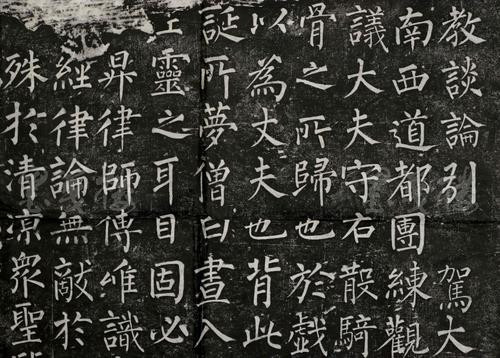 教談論引 駕大
南西道都團練觀
議大夫守右散騎
骨之所歸也於戲
以為丈夫也背此
誕所夢僧曰晝入
靈之耳目固必
昇律師傳維識
經律論無敵於
殊於清涼衆聖